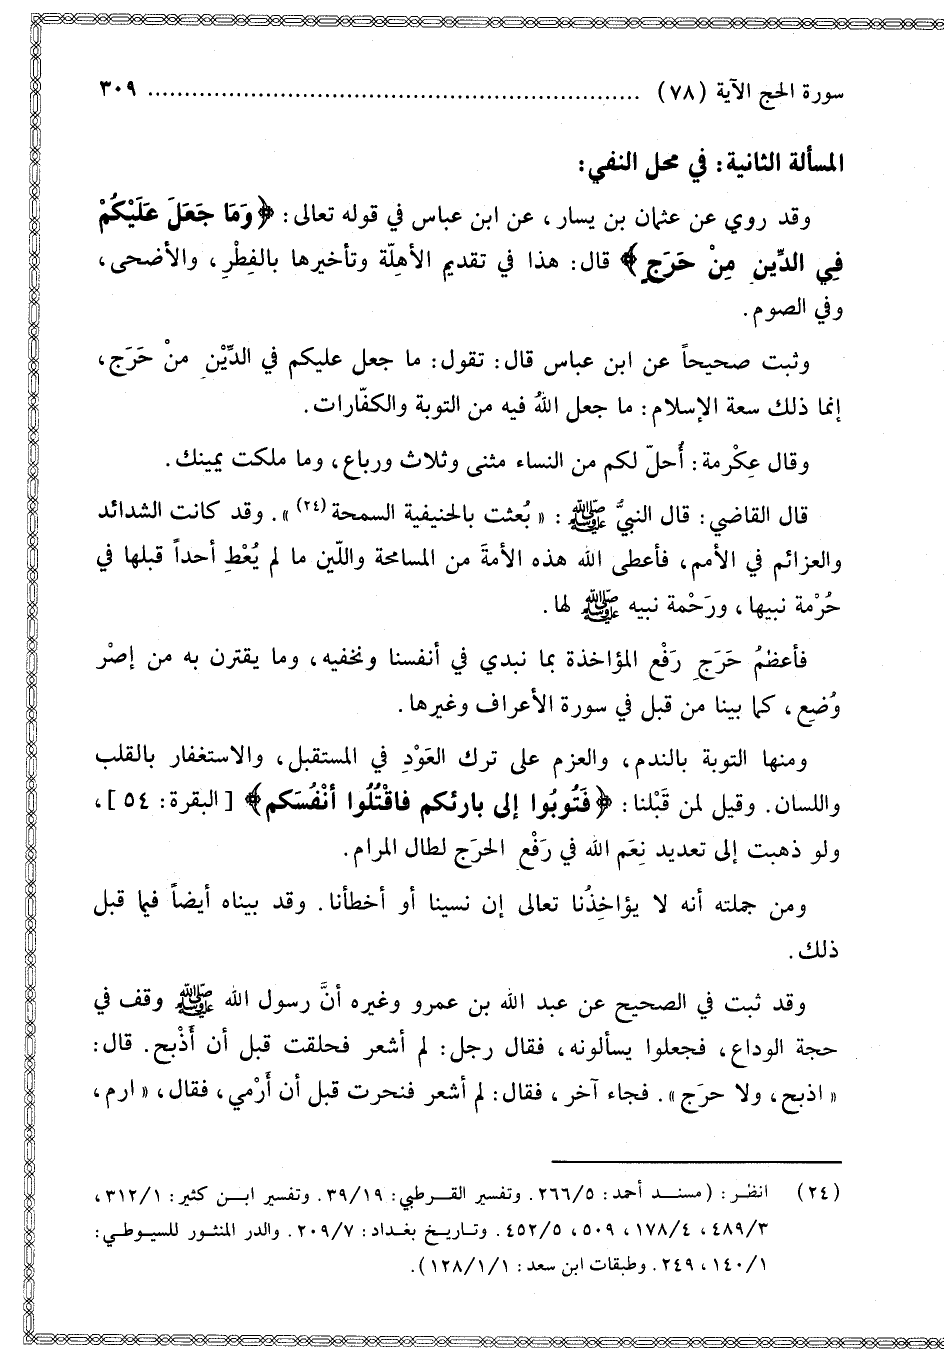 سورة الحج الآية (٧٨) ................................................................ ٣٠٩
المسألة الثانية: في محل النفي:
وقد روي عن عثمان بن يسار، عن ابن عباس في قوله تعالى: ﴿وَمَا جَعَلَ عَلَيْكُمْ
فِي الدِّينِ مِنْ حَرَجٍ﴾ قال: هذا في تقديم الأهلّة وتأخيرها بالفِطْرِ، والأضحى،
وفي الصوم.
وثبت صحيحاً عن ابن عباس قال: تقول: ما جعل عليكم في الدِّيْنِ منْ حَرَج،
إنما ذلك سعة الإسلام: ما جعل اللهُ فيه من التوبة والكفّارات.
وقال عِكْرمة: أُحلّ لكم من النساء مثنى وثلاث ورباع، وما ملكت يمينك.
قال القاضي: قال النبيُّ ﷺ: «بُعثت بالحنيفية السمحة(٢٤)». وقد كانت الشدائد
والعزائم في الأمم، فأعطى الله هذه الأمةَ من المسامحة واللّين ما لم يُعْطِ أحداً قبلها في
حُرْمة نبيها، ورَحْمة نبيه ﷺ لها.
فأعظمُ حَرَجٍ رَفْع المؤاخذة بما نبدي في أنفسنا ونخفيه، وما يقترن به من إصْر
وُضِع، كما بينا من قبل في سورة الأعراف وغيرها.
ومنها التوبة بالندم، والعزم على ترك العَوْدِ في المستقبل، والاستغفار بالقلب
واللسان. وقيل لمن قَبْلنا: ﴿فَتُوبُوا إلى بارئكم فاقْتُلُوا أنْفُسَكم﴾ [البقرة: ٥٤]،
ولو ذهبت إلى تعديد نِعَم الله في رَفْعِ الحرَج لطال المرام.
ومن جملته أنه لا يؤاخِذُنا تعالى إن نسينا أو أخطأنا. وقد بيناه أيضاً فيما قبل
ذلك.
وقد ثبت في الصحيح عن عبد الله بن عمرو وغيره أنَّ رسول الله ﷺ وقف في
حجة الوداع، فجعلوا يسألونه، فقال رجل: لم أشعر فحلقت قبل أن أَذْبح. قال:
«اذبح، ولا حرَج». فجاء آخر، فقال: لم أشعر فنحرت قبل أن أَرْمي، فقال، «ارم،
(٢٤) انظر: (مسند أحمد: ٢٦٦/٥. وتفسير القرطبي: ٣٩/١٩. وتفسير ابن كثير: ٣١٢/١،
٤٨٩/٣، ١٧٨/٤، ٥٠٩، ٤٥٢/٥. وتاريخ بغداد: ٢٠٩/٧. والدر المنثور للسيوطي:
١٤٠/١، ٢٤٩. وطبقات ابن سعد: ١٢٨/١/١).